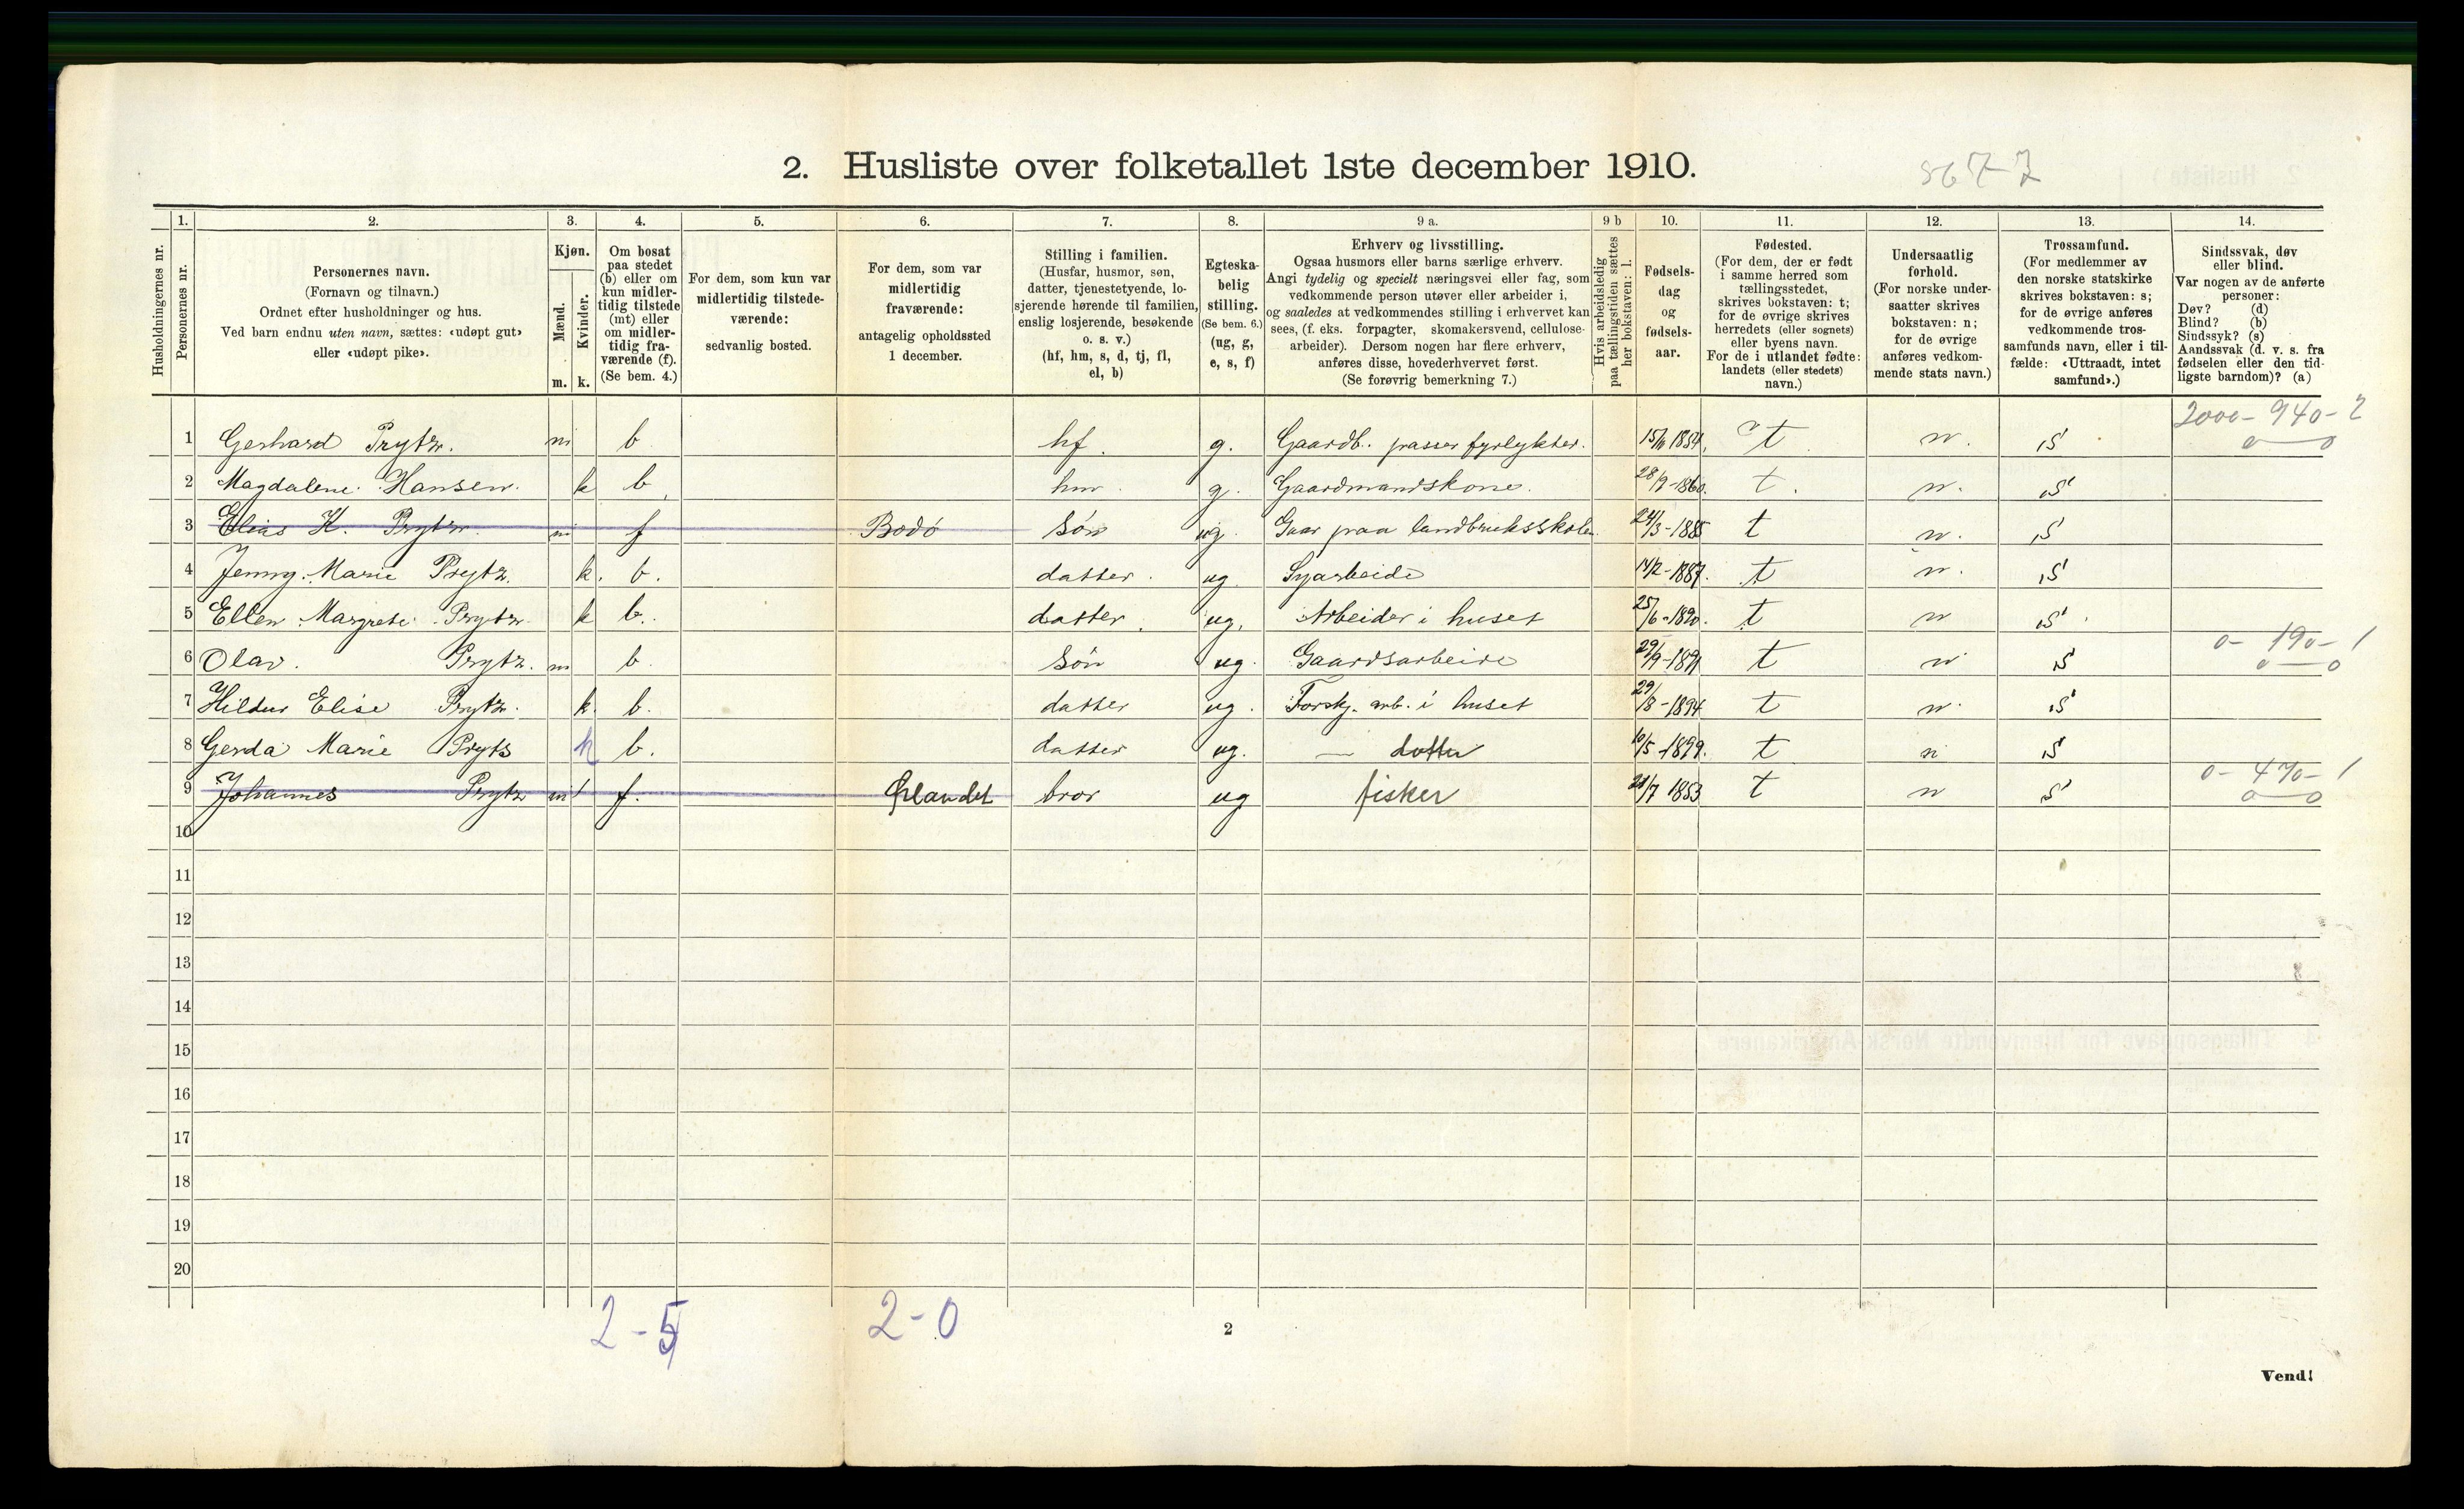 2. Husliste over folketallet 1ste december 1910.
1. 2. 3. 4. 5. 6. 7. 8. 9 a. 9 b 10. 11. 12. 13. 14.
Husholdningernes nr.
Personernes nr.
Personernes navn.
(Fornavn og tilnavn.)
Ordnet efter husholdninger og hus.
Ved barn endnu uten navn, sættes: «udøpt gut»
eller «udøpt pike».
Kjøn.
Mænd.
Kvinder.
m. k.
Om bosat
paa stedet
(b) eller om
kun midler-
tidig tilstede
(mt) eller
om midler-
tidig fra-
værende (f).
(Se bem. 4.)
For dem, som kun var
midlertidig tilstede-
værende:
sedvanlig bosted.
For dem, som var
midlertidig
fraværende:
antagelig opholdssted
1 december.
Stilling i familien.
(Husfar, husmor, søn,
datter, tjenestetyende, lo-
sjerende hørende til familien,
enslig losjerende, besøkende
o. s. v.)
(hf, hm, s, d, tj, fl,
el, b)
Egteska-
belig
stilling.
(Se bem. 6.)
(ug, g,
e, s, f)
Erhverv og livsstilling.
Ogsaa husmors eller barns særlige erhverv.
Angi tydelig og specielt næringsvei eller fag, som
vedkommende person utøver eller arbeider i,
og saaledes at vedkommendes stilling i erhvervet kan
sees, (f. eks. forpagter, skomakersvend, cellulose-
arbeider). Dersom nogen har flere erhverv,
anføres disse, hovederhvervet først.
(Se forøvrig bemerkning 7.)
Hvis arbeidsledig
paa tællingstiden sættes
her bokstaven: l.
Fødsels-
dag
og
fødsels-
aar.
Fødested.
(For dem, der er født
i samme herred som
tællingsstedet,
skrives bokstaven: t;
for de øvrige skrives
herredets (eller sognets)
eller byens navn.
For de i utlandet fødte:
landets (eller stedets)
navn.)
Undersaatlig
forhold.
(For norske under-
saatter skrives
bokstaven: n;
for de øvrige
anføres vedkom-
mende stats navn.)
Trossamfund.
(For medlemmer av
den norske statskirke
skrives bokstaven: s;
for de øvrige anføres
vedkommende tros-
samfunds navn, eller i til-
fælde: «Uttraadt, intet
samfund».)
Sindssvak, døv
eller blind.
Var nogen av de anførte
personer:
Døv? (d)
Blind? (b)
Sindssyk? (s)
Aandssvak (d. v. s. fra
fødselen eller den tid-
ligste barndom)? (a)
2000 - 940 - 2
1 Gerhard Prytz. m b hf. g. Gaardb. passer fyrlykter. 1854, t n. s
2 Magdalene Hansen. k b hm. g. Gaardmandskone. 28/9-1860. t. n. s
3 Elias K. Prytz m f Bodö Sön ug. Gaar paa landbruksskolen. 24/3-1885 t n. s
4 Jenny Marie Prytz. k. b. datter. ug Syarbeide 14/2-1887. t n. s
5 Ellen Margrete Prytz k b. datter. ug. Arbeider i huset 25/6-1890. t n s
0 - 190 - 1
6 Olav. Prytz. m b. Sön ug. Gaardsarbeide 29/9-1891 t n s
7 Hildur Elise Prytz. k. b. datter ug. Forskj. arb. i huset 29/8-1894 t n. s
8 Gerda Marie Pryts k b. datter ug. — datter 10/5-1899. t n s
0 - 470 - 1
9 Johannes Prytz m f. bror ug fisker 21/7 1853 t n s
10
11
12
13
14
15
16
17
18
19
20
2 - 5 2 - 0
2
Vend!